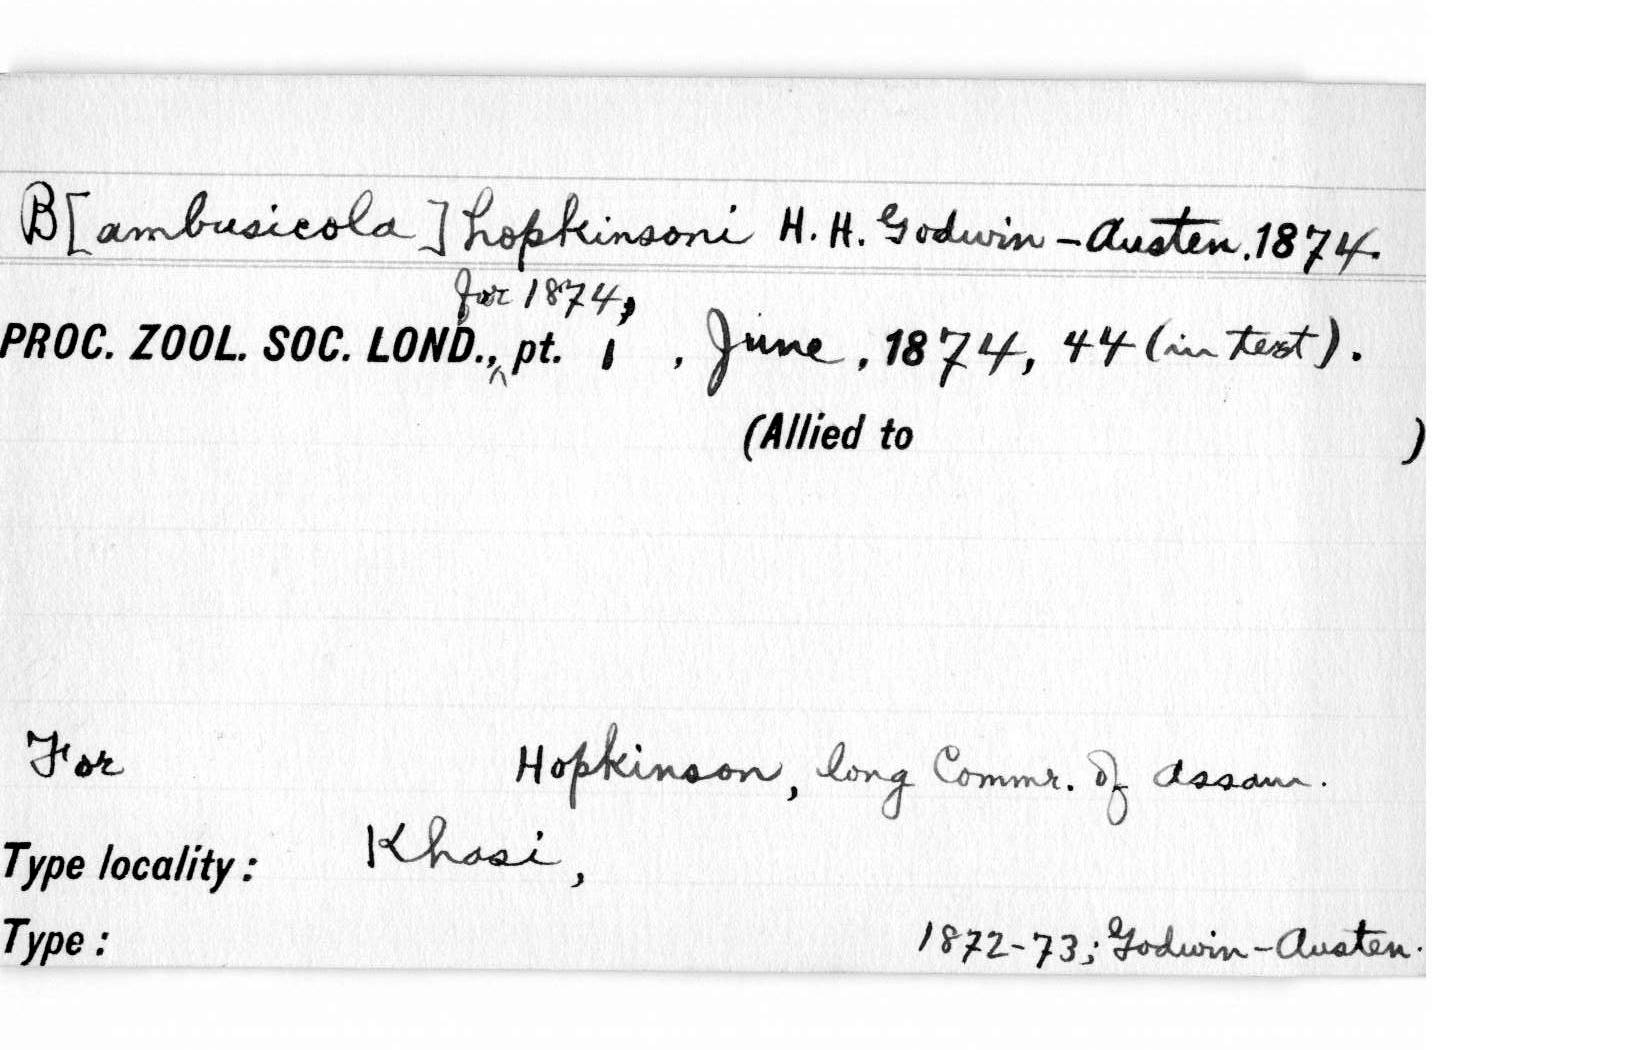 B[ambusicola] hopkinsoni H. H. Godwin-Austen. 1874.
for 1874,
PROC. ZOOL. SOC. LOND., pt. 1, June, 1874, 44 (in text).
(Allied to )
For Hopkinson, long Commr. of Assam.
Type locality: Khasi,
Type: 1872-73; Godwin-Austen.